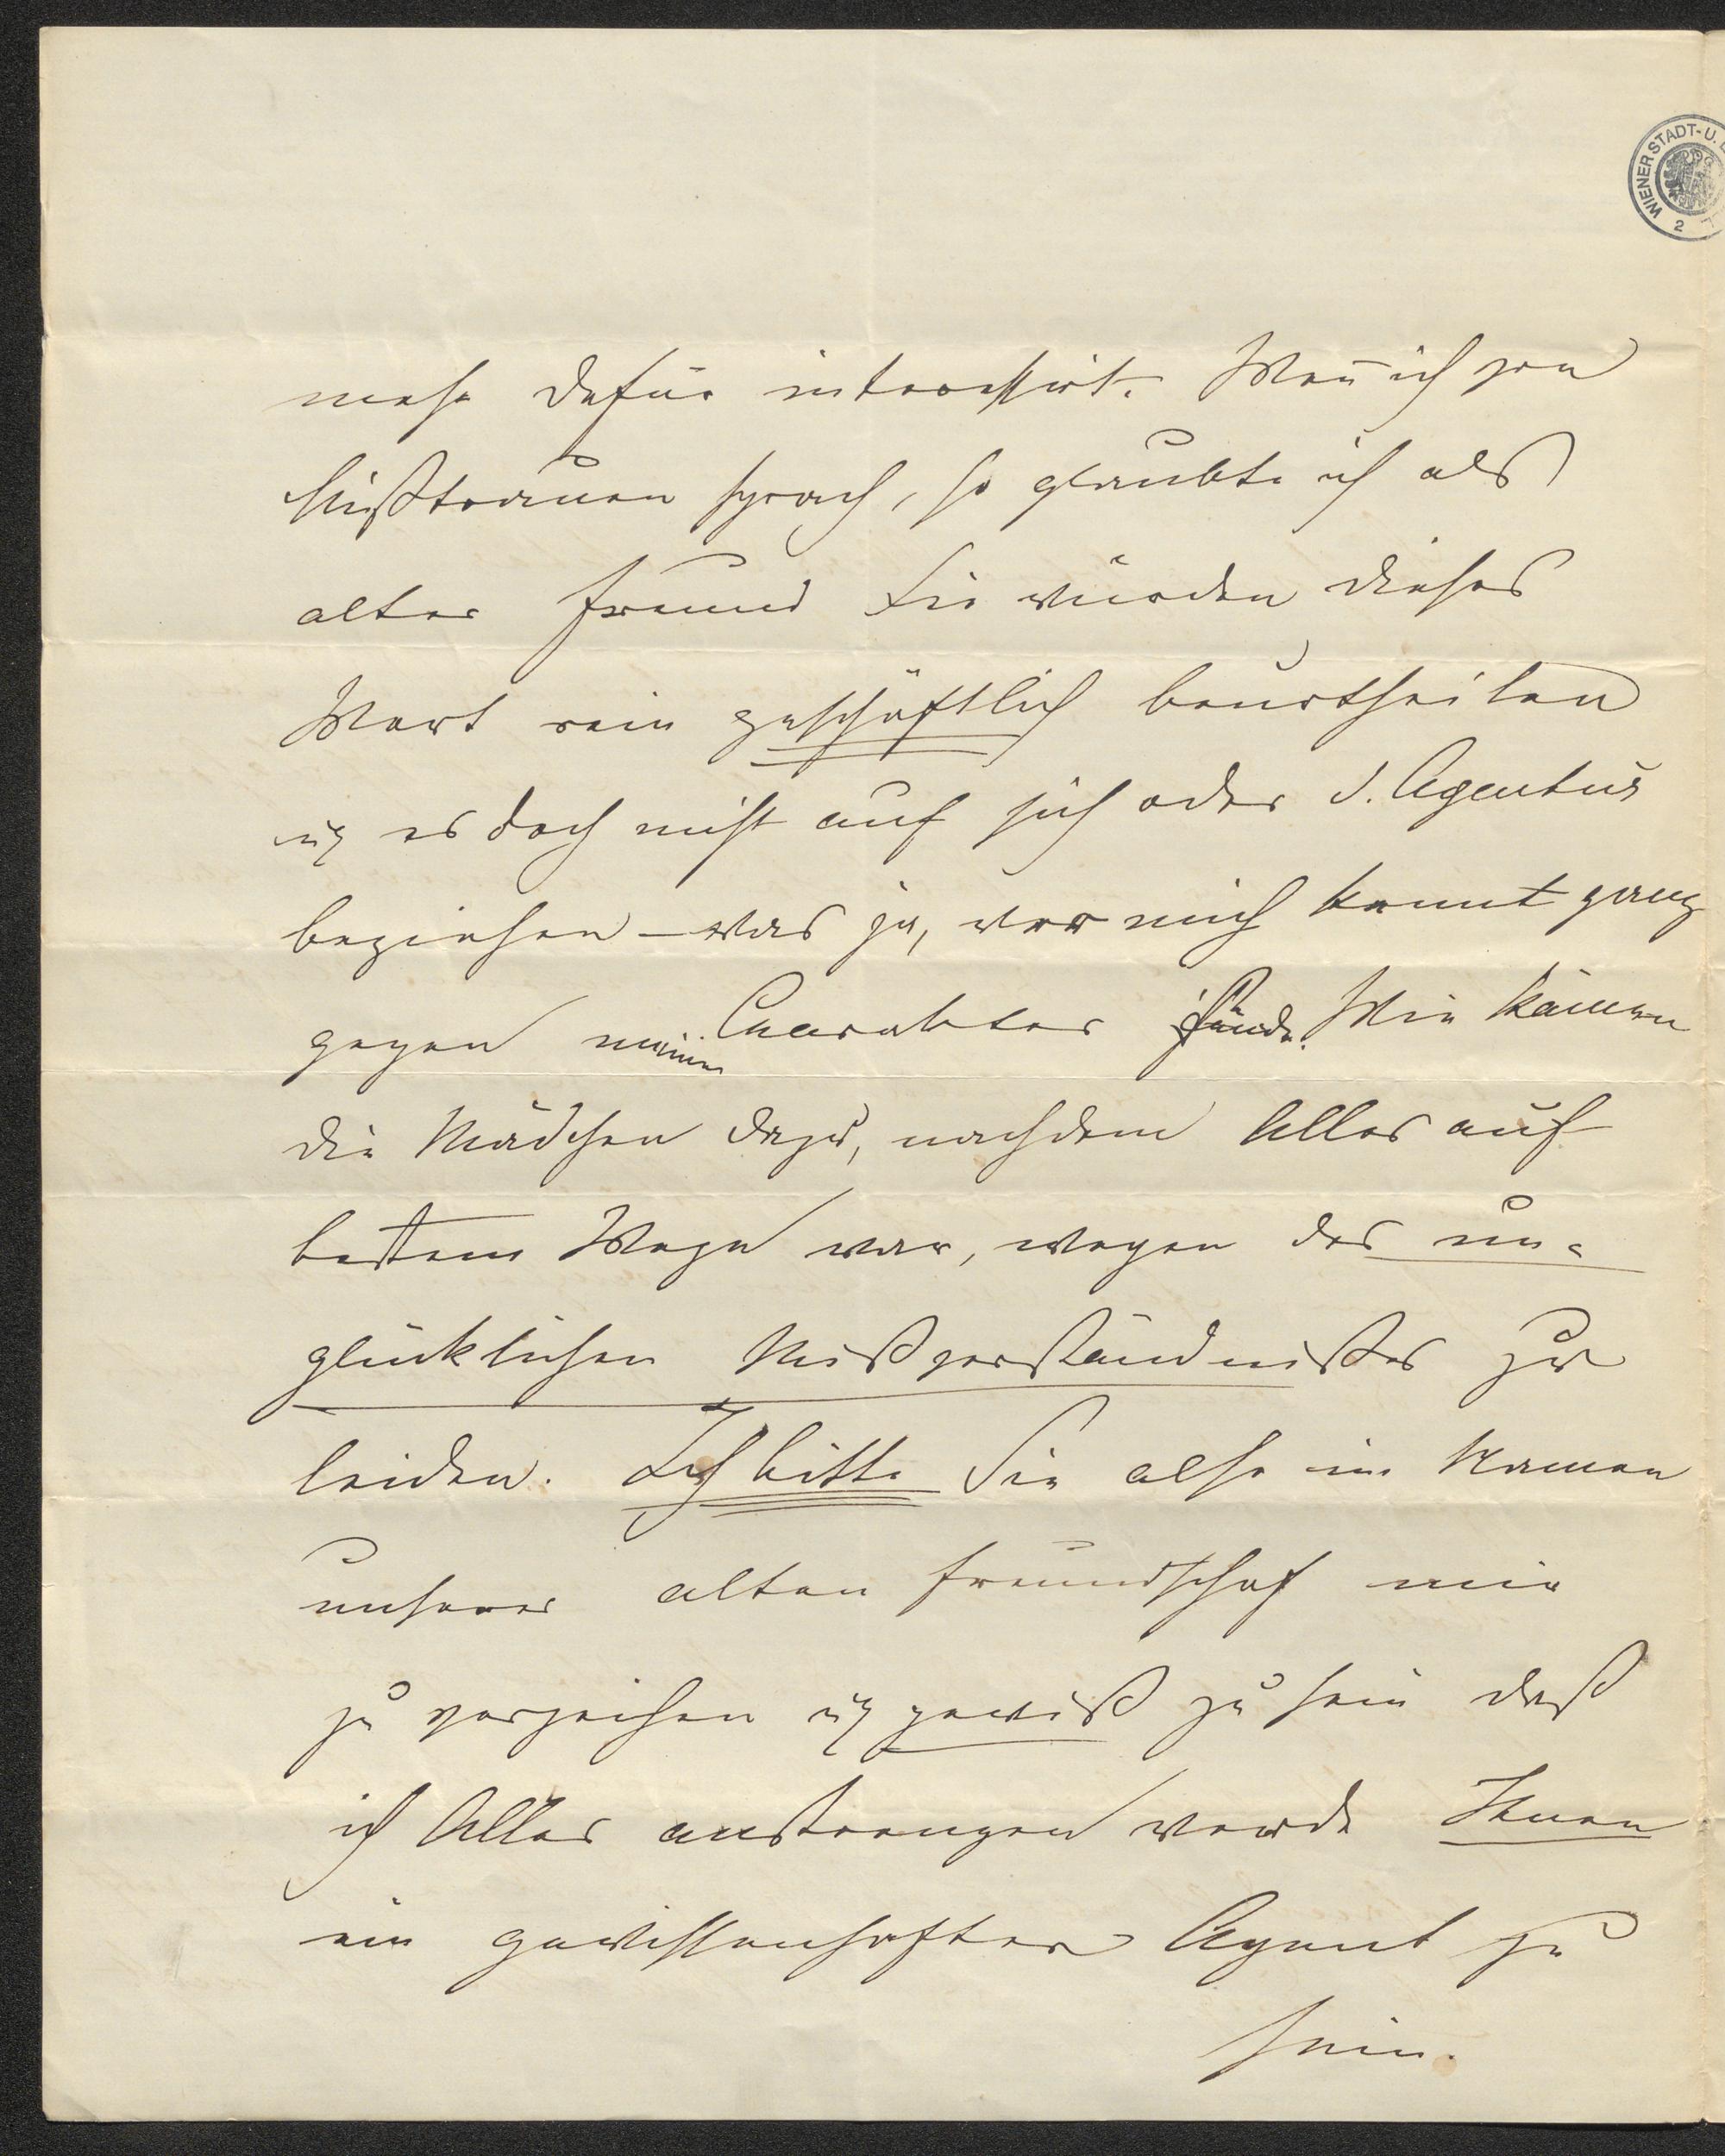 WIENER STADT-U.
2
mehr dafür interessirt. Wen̄ ich von
Mißtrauen sprach, so glaubte ich als
alter Freund Sie würden dieses
Wort rein geschäftlich beurtheilen
u es doch nicht auf sich oder d. Agentur
beziehen – was ja, wer mich kennt ganz
gegen meinen Character fände. Wie kämen
die Mädchen dazu, nachdem Alles auf
bestem Wege war, wegen des un-
glücklichen Mißverständnißes zu
leiden. Ich bitte Sie also im Namen
unserer alten Freundschaf mir
zu verzeihen u gewiß zu sein daß
ich Alles anstrengen werde Ihnen
ein gewissenhafter Agent zu
sein.